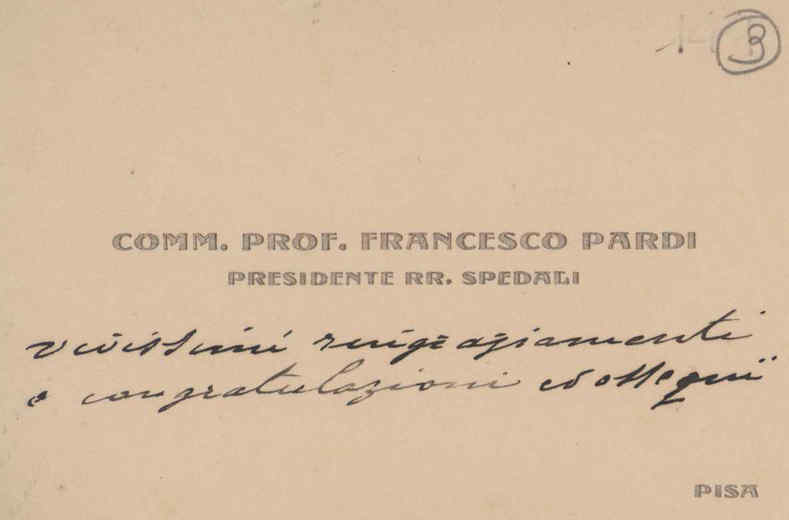 3
COMM. PROF. FRANCESCO PARDI
PRESIDENTE RR. SPEDALI
vivissimi ringraziamenti
e congratulazioni ed ossequii
PISA